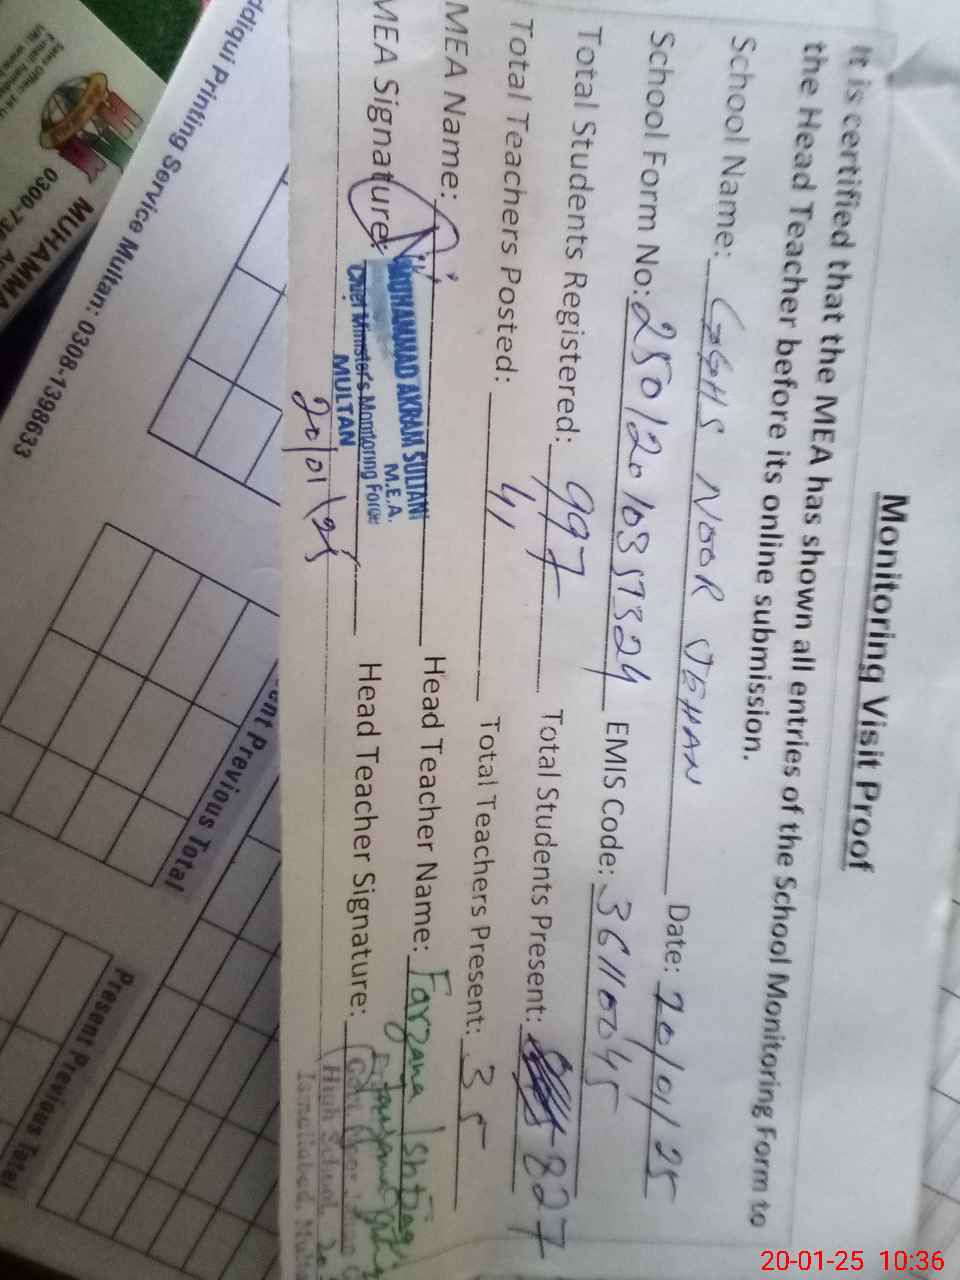 Monitoring Visit Proof
It is certified that the MEA has shown all entries of the School Monitoring Form to
the Head Teacher before its online submission.
School Name: GGHS NOOR JEHAN Date: 20/01/25
School Form No: 25012010357324 EMIS Code: 36110045
Total Students Registered: 997 Total Students Present: 827
Total Teachers Posted: 41 Total Teachers Present: 35
MEA Name: Head Teacher Name: Farzana Ishtiaq
MEA Signature: Head Teacher Signature:
MUHAMMAD AKRAM SULTANI
M.E.A.
Chief Minister's Monitoring Force
MULTAN
20/01/25
High School
Ismailabad,
ddiqui Printing Service Multan: 0308-1398633
ent Previous Total
Present Previous Total
MUHAMMA
0300-73
20-01-25 10:36